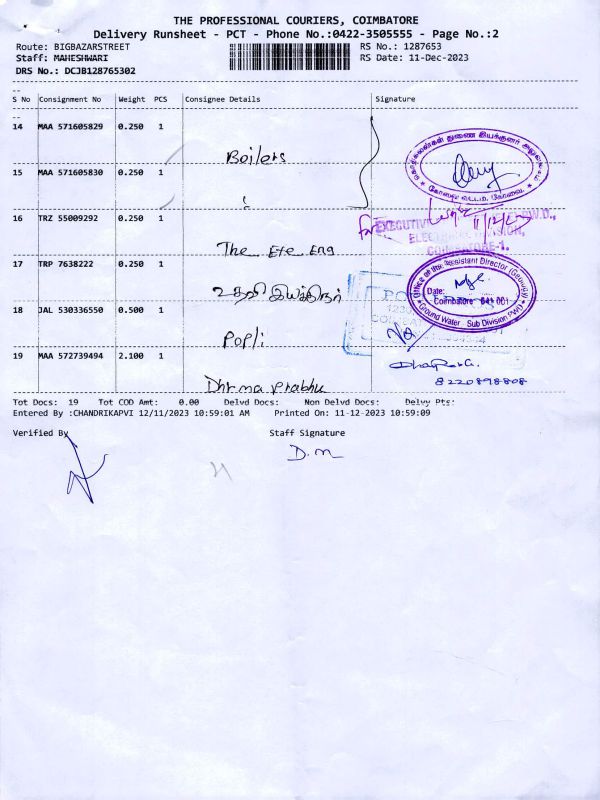 THE PROFESSIONAL COURIERS, COIMBATORE
Delivery Runsheet - PCT - Phone No.:0422-3505555 - Page No.:2
Route: BIGBAZARSTREET
RS No.: 1287653
Staff: MAHESHWARI
RS Date: 11-Dec-2023
DRS No.: DCJB128765302
S No Consignment No Weight PCS Consignee Details Signature
14 MAA 571605829 0.250 1
Boilers
15 MAA 571605830 0.250 1
16 TRZ 55009292 0.250 1
The Exe Eng
17 TRP 7638222 0.250 1
உதவி இயக்குநர்
18 JAL 530336550 0.500 1
Popli
19 MAA 572739494 2.100 1
Dhrma Prabhu
8220898808
Office of the Assistant Director
Date:
Coimbatore 641 001
Ground Water Sub Division PWD
Tot Docs: 19 Tot COD Amt: 0.00 Delvd Docs: Non Delvd Docs: Delvy Pts:
Entered By :CHANDRIKAPVI 12/11/2023 10:59:01 AM Printed On: 11-12-2023 10:59:09
Verified By
Staff Signature
D.m